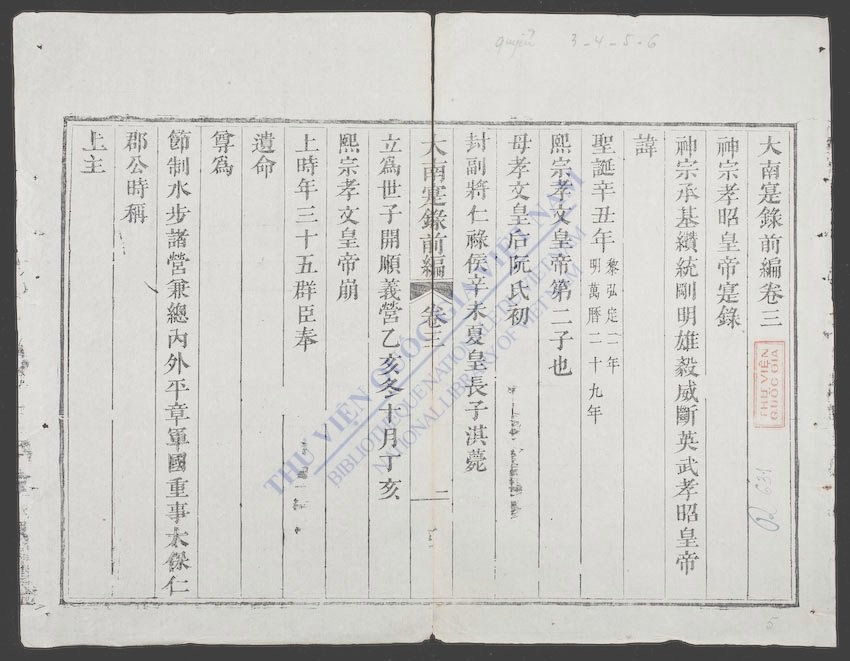 quyển 3-4-5-6
大南寔錄前編卷三
神宗孝昭皇帝寔錄
神宗承基纘統剛明雄毅威斷英武孝昭皇帝
諱
聖誕辛丑年黎弘定二年
明萬曆二十九年
熙宗孝文皇帝第二子也
母孝文皇后阮氏初
封副將仁祿侯辛未夏皇長子淇薨
大南寔錄前編 卷三 一
立爲世子開順義營乙亥冬十月丁亥
熙宗孝文皇帝崩
上時年三十五群臣奉
遺命
尊爲
節制水步諸營兼總內外平章軍國重事太保仁
郡公時稱
上主
THƯ VIỆN QUỐC GIA
THƯ VIỆN QUỐC GIA VIỆT NAM
BIBLIOTHÈQUE NATIONALE DU VIETNAM
NATIONAL LIBRARY OF VIETNAM
631
5